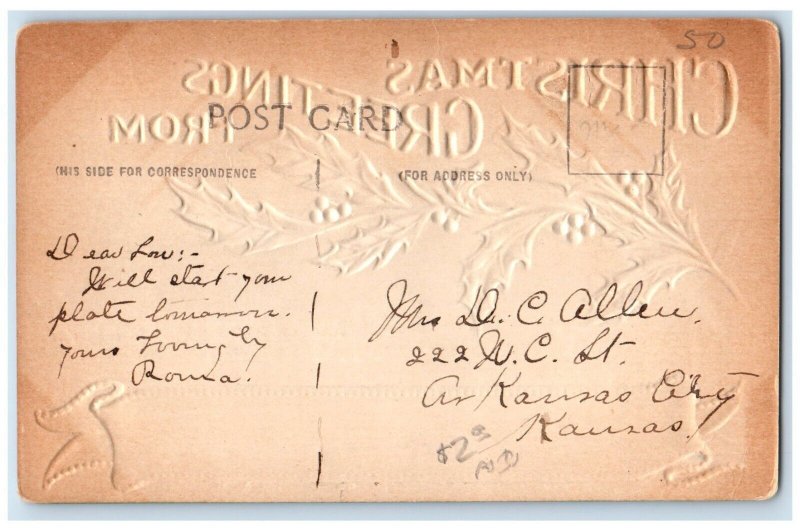 50
CHRISTMAS
GREETINGS
FROM
POST CARD
(HIS SIDE FOR CORRESPONDENCE
(FOR ADDRESS ONLY)
Dear Lou:-
Will start your
plate tomorrow.
yours Lovingly
Roma.
Mrs D. C. Allen.
222 N. C. St.
Arkansas City
Kansas.
$2